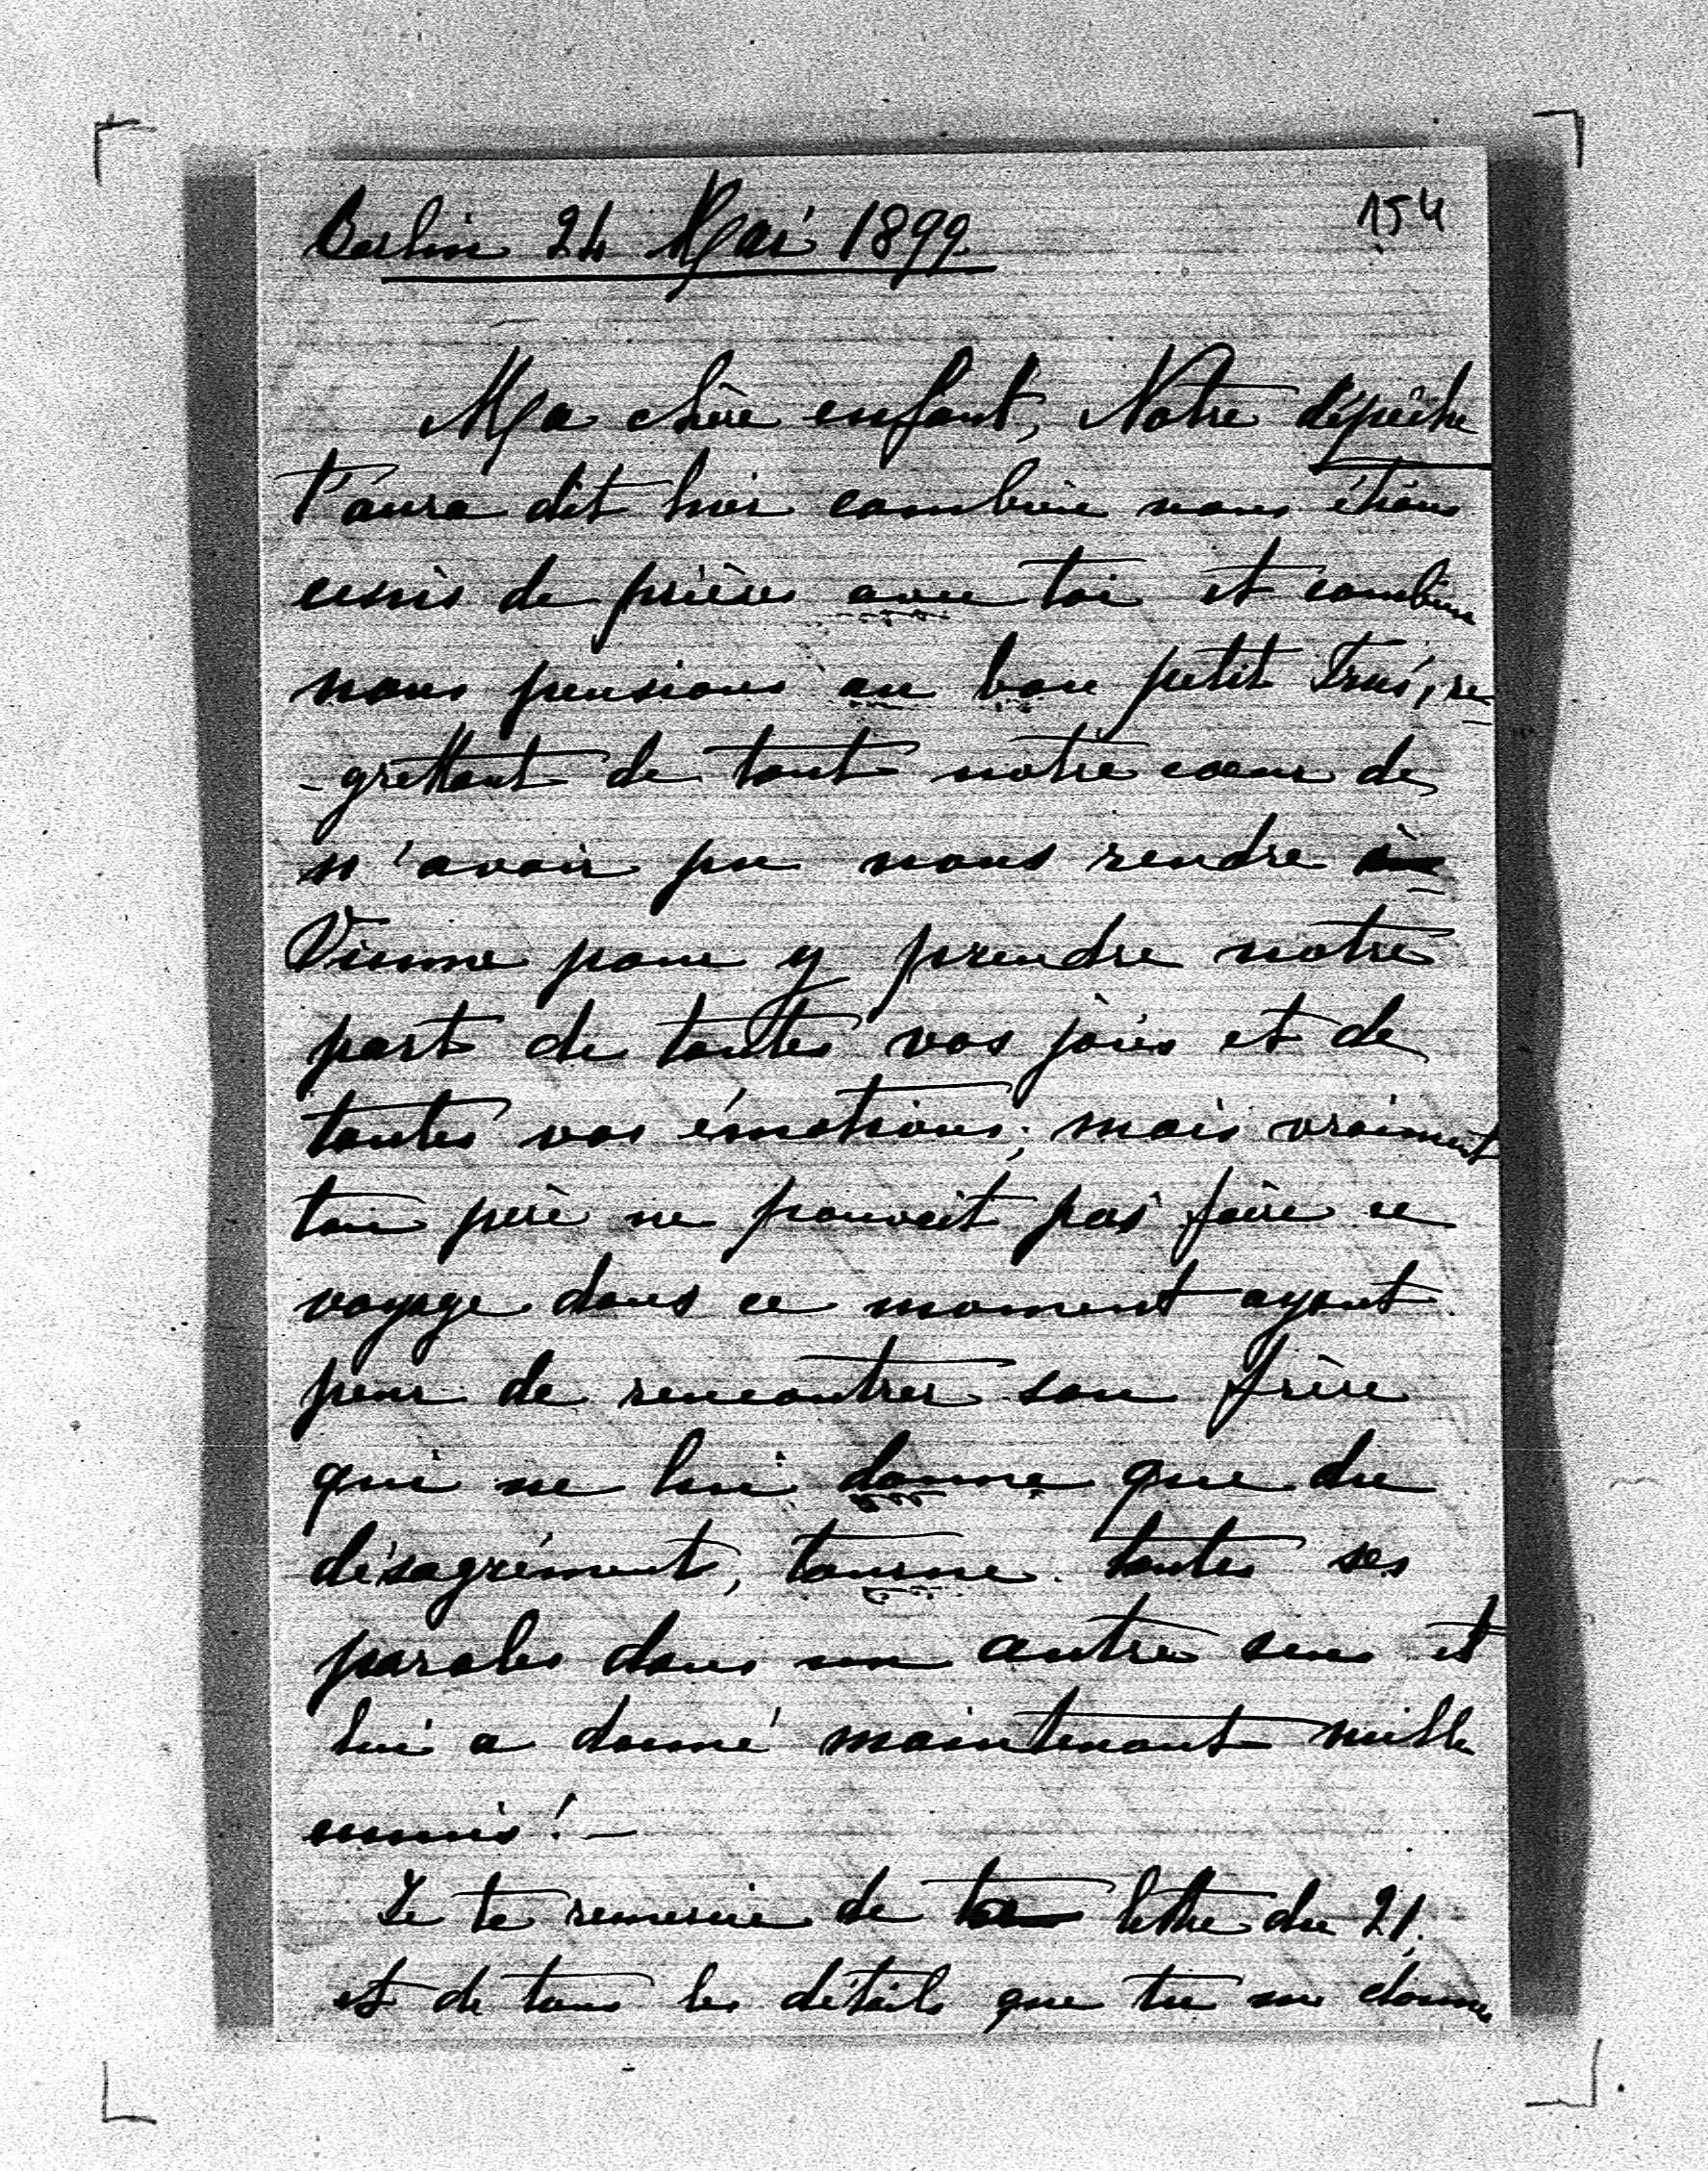 Berlin 24 Mai 1899
154
Ma chère enfant, Notre dépêche
t'aura dit hier combien nous étions
unis de prières avec toi et combien
nous pensions au bon petit , re
-grettant de tout notre coeur de
n'avoir pu nous rendre à
Vienne pour y prendre notre
part de toutes vos joies et de
toutes vos émotions; mais vraiment
ton père ne pouvait pas faire ce
voyage dans ce moment ayant
peur de rencontrer son frère
qui ne lui donne que du
désagrément, tourne toutes ses
paroles dans un autre sens et
lui a donné maintenant mille
ennuis! —
Je te remercie de ta lettre du 21.
et de tous les détails que tu me donnes